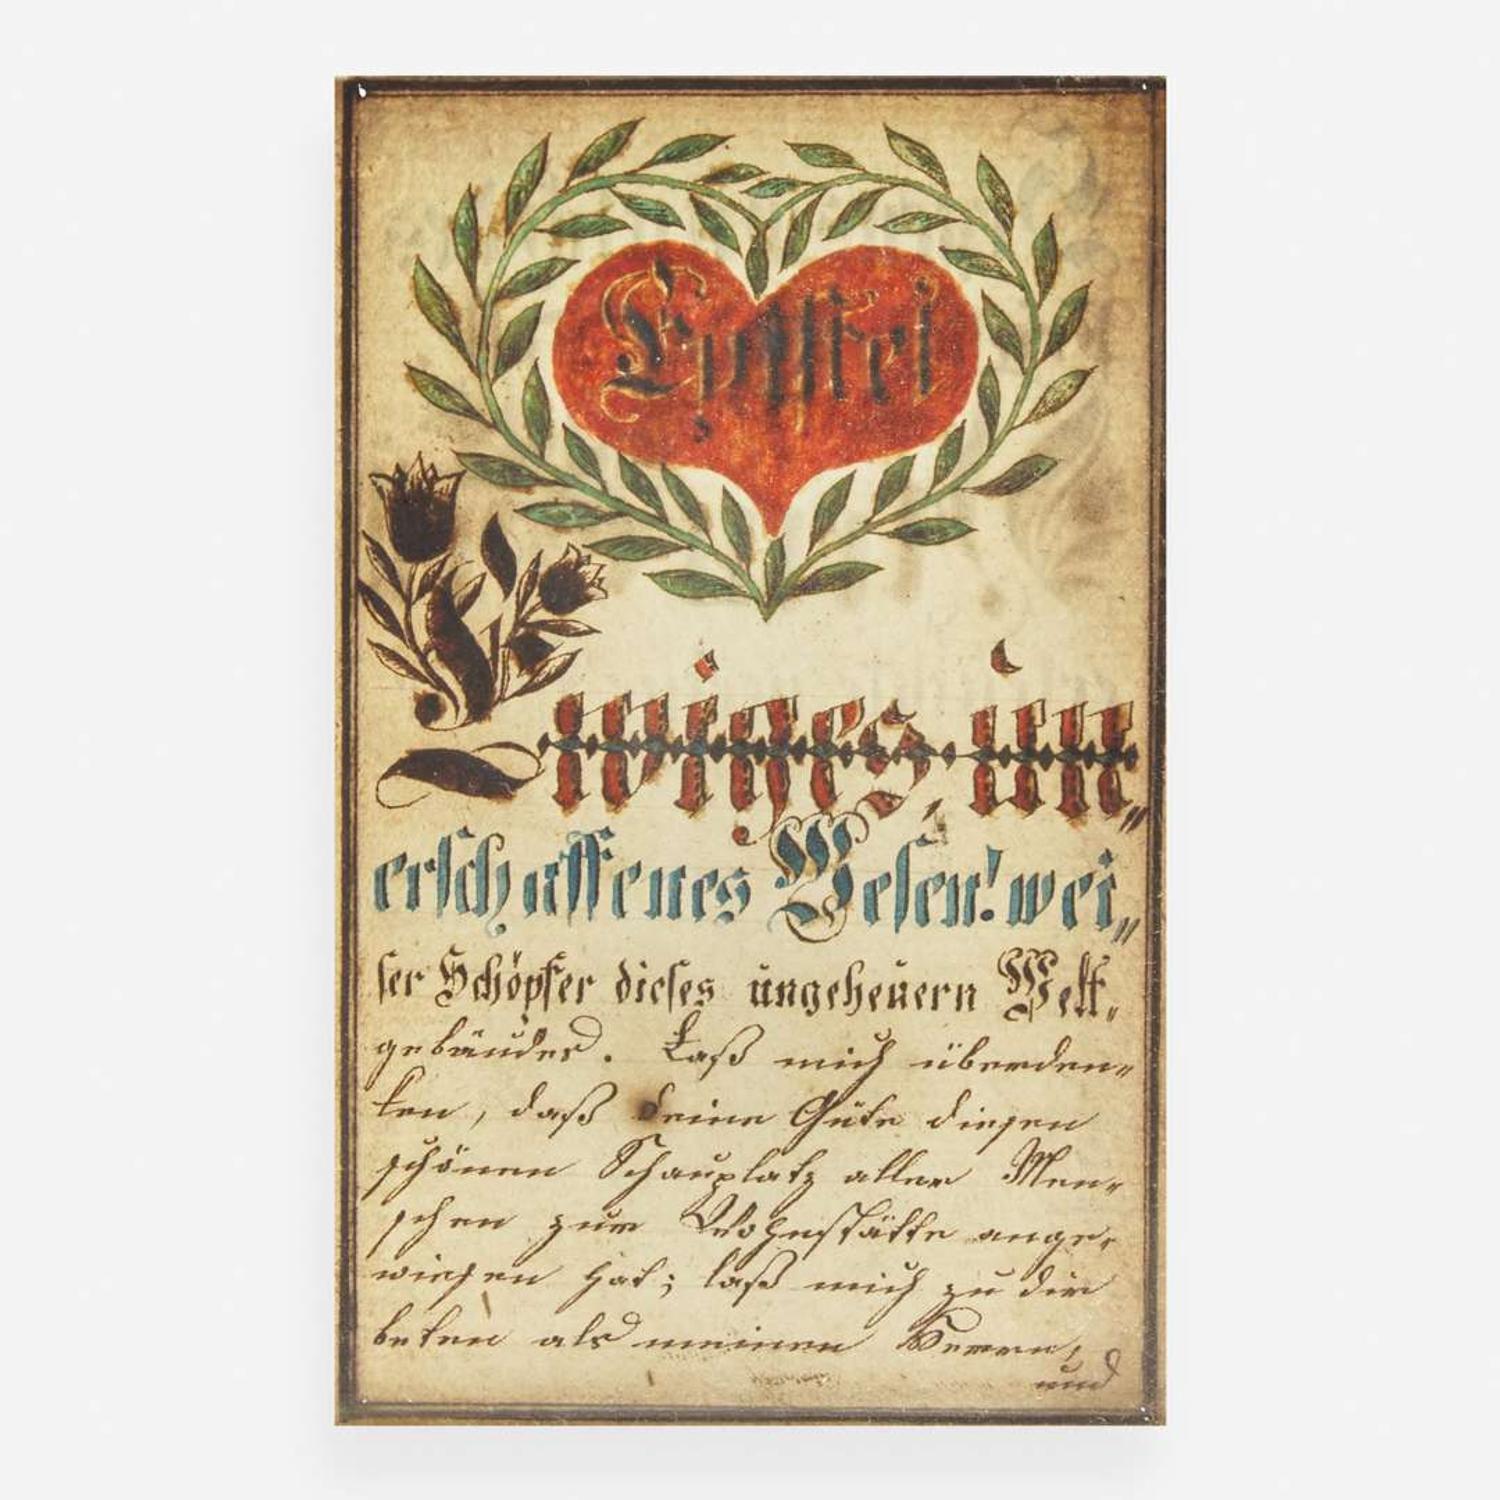 Epistel
Ewiges un„
erschaffenes Wesen! wei„
ser Schöpfer dieses ungeheuern Welt„
gebäudes. Laß mich überden„
ken, daß deine Güte diesen
schönen Schauplatz aller Men„
schen zur Wohnstätte ange„
wiesen hat; laß mich zu dir
beten als meinen Herrn,
und